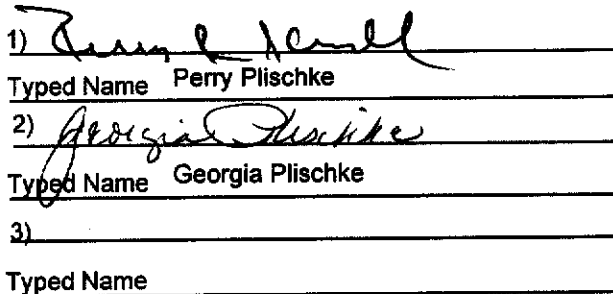 1)
Typed Name Perry Plischke
2) Georgia Plischke
Typed Name Georgia Plischke
3)
Typed Name